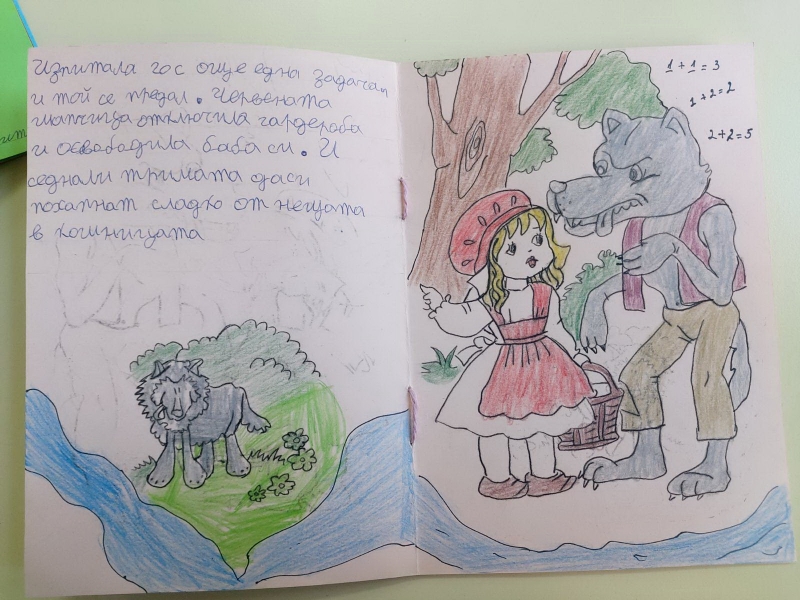 Изпитала го с още една задачап
и той се предал. Червената
шапчица отключила гардероба
и освободила баба си. И
седнали тримата даси
похапнат сладко от нещата
в кошницата
1+1=3
1+2=2
2+2=5